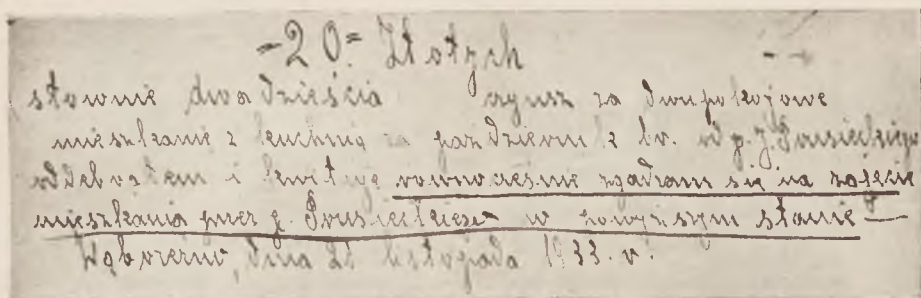 =20= Złotych
słownie dwadzieścia czynsz za dwupokojowe
mieszkanie z kuchnią za październik br. od p. J. Prusieckiego
odebrałem i kwituję równocześnie zgadzam się na zajęcie
mieszkania przez p. Prusieckiego w powyższym stanie
Wąbrzeźno, dnia 21 listopada 1933. r.